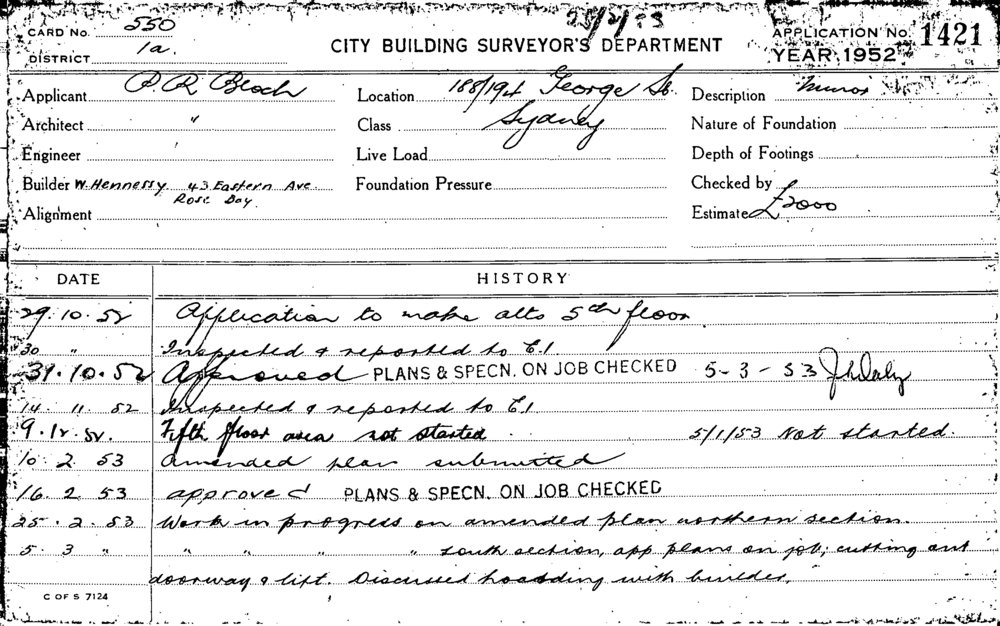 25/2/53
CARD No. 550
DISTRICT 1a.
CITY BUILDING SURVEYOR'S DEPARTMENT
APPLICATION No. 1421
YEAR 1952
Applicant P. R. Bloch
Location 188/194 George St.
Description Minor
Architect "
Class Sydney
Nature of Foundation
Engineer
Live Load
Depth of Footings
Builder W. Hennessy. 43 Eastern Ave. Rose Bay.
Foundation Pressure
Checked by
Alignment
Estimate £2000
DATE HISTORY
29.10.52 Application to make alts 5th floor.
30 " Inspected & reported to E.1.
31.10.52 Approved PLANS & SPECN. ON JOB CHECKED 5-3-53 J h Daly
14.11.52 Inspected & reported to E.1.
9.12.52. Fifth floor area not started 5/1/53 Not started.
10.2.53 amended plan submitted
16.2.53 approved PLANS & SPECN. ON JOB CHECKED
25.2.53 Work in progress on amended plan northern section.
5.3 " " " " " south section, app plans on job; cutting out
doorway & lift. Discussed hoarding with builder.
C OF S 7124